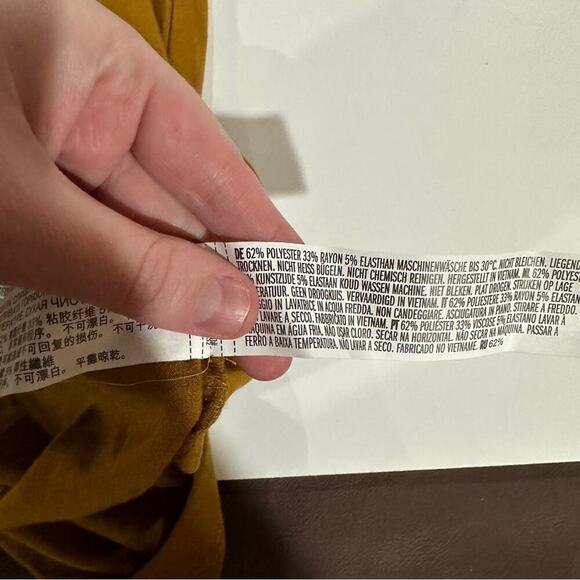 DE 62% POLYESTER 33% RAYON 5% ELASTHAN MASCHINENWÄSCHE BIS 30°C. NICHT BLEICHEN. LIEGEND
TROCKNEN. NICHT HEISS BÜGELN. NICHT CHEMISCH REINIGEN. HERGESTELLT IN VIETNAM. NL 62% POLYE
KUNSTZIJDE 5% ELASTAAN KOUD WASSEN MACHINE. NIET BLEKEN. PLAT DROGEN. STRIJKEN OP LAGE
ERATUUR. GEEN DROOGKUIS. VERVAARDIGD IN VIETNAM. IT 62% POLIESTERE 33% RAYON 5% ELASTAN
AGGIO IN LAVATRICE IN ACQUA FREDDA. NON CANDEGGIARE. ASCIUGATURA IN PIANO. STIRARE A FREDDO.
LAVARE A SECO. FABBRICATO IN VIETNAM. PT 62% POLIÉSTER 33% VISCOSE 5% ELASTANO LAVAR À
QUINA EM ÁGUA FRIA. NÃO USAR CLORO. SECAR NA HORIZONTAL. NÃO SECAR NA MÁQUINA. PASSAR A
FERRO A BAIXA TEMPERATURA. NÃO LAVAR A SECO. FABRICADO NO VIETNAME. RU 62%
粘胶纤维 5
不可漂白。
可回复的损伤。不可干
性纖維
不可漂白。平攤晾乾。